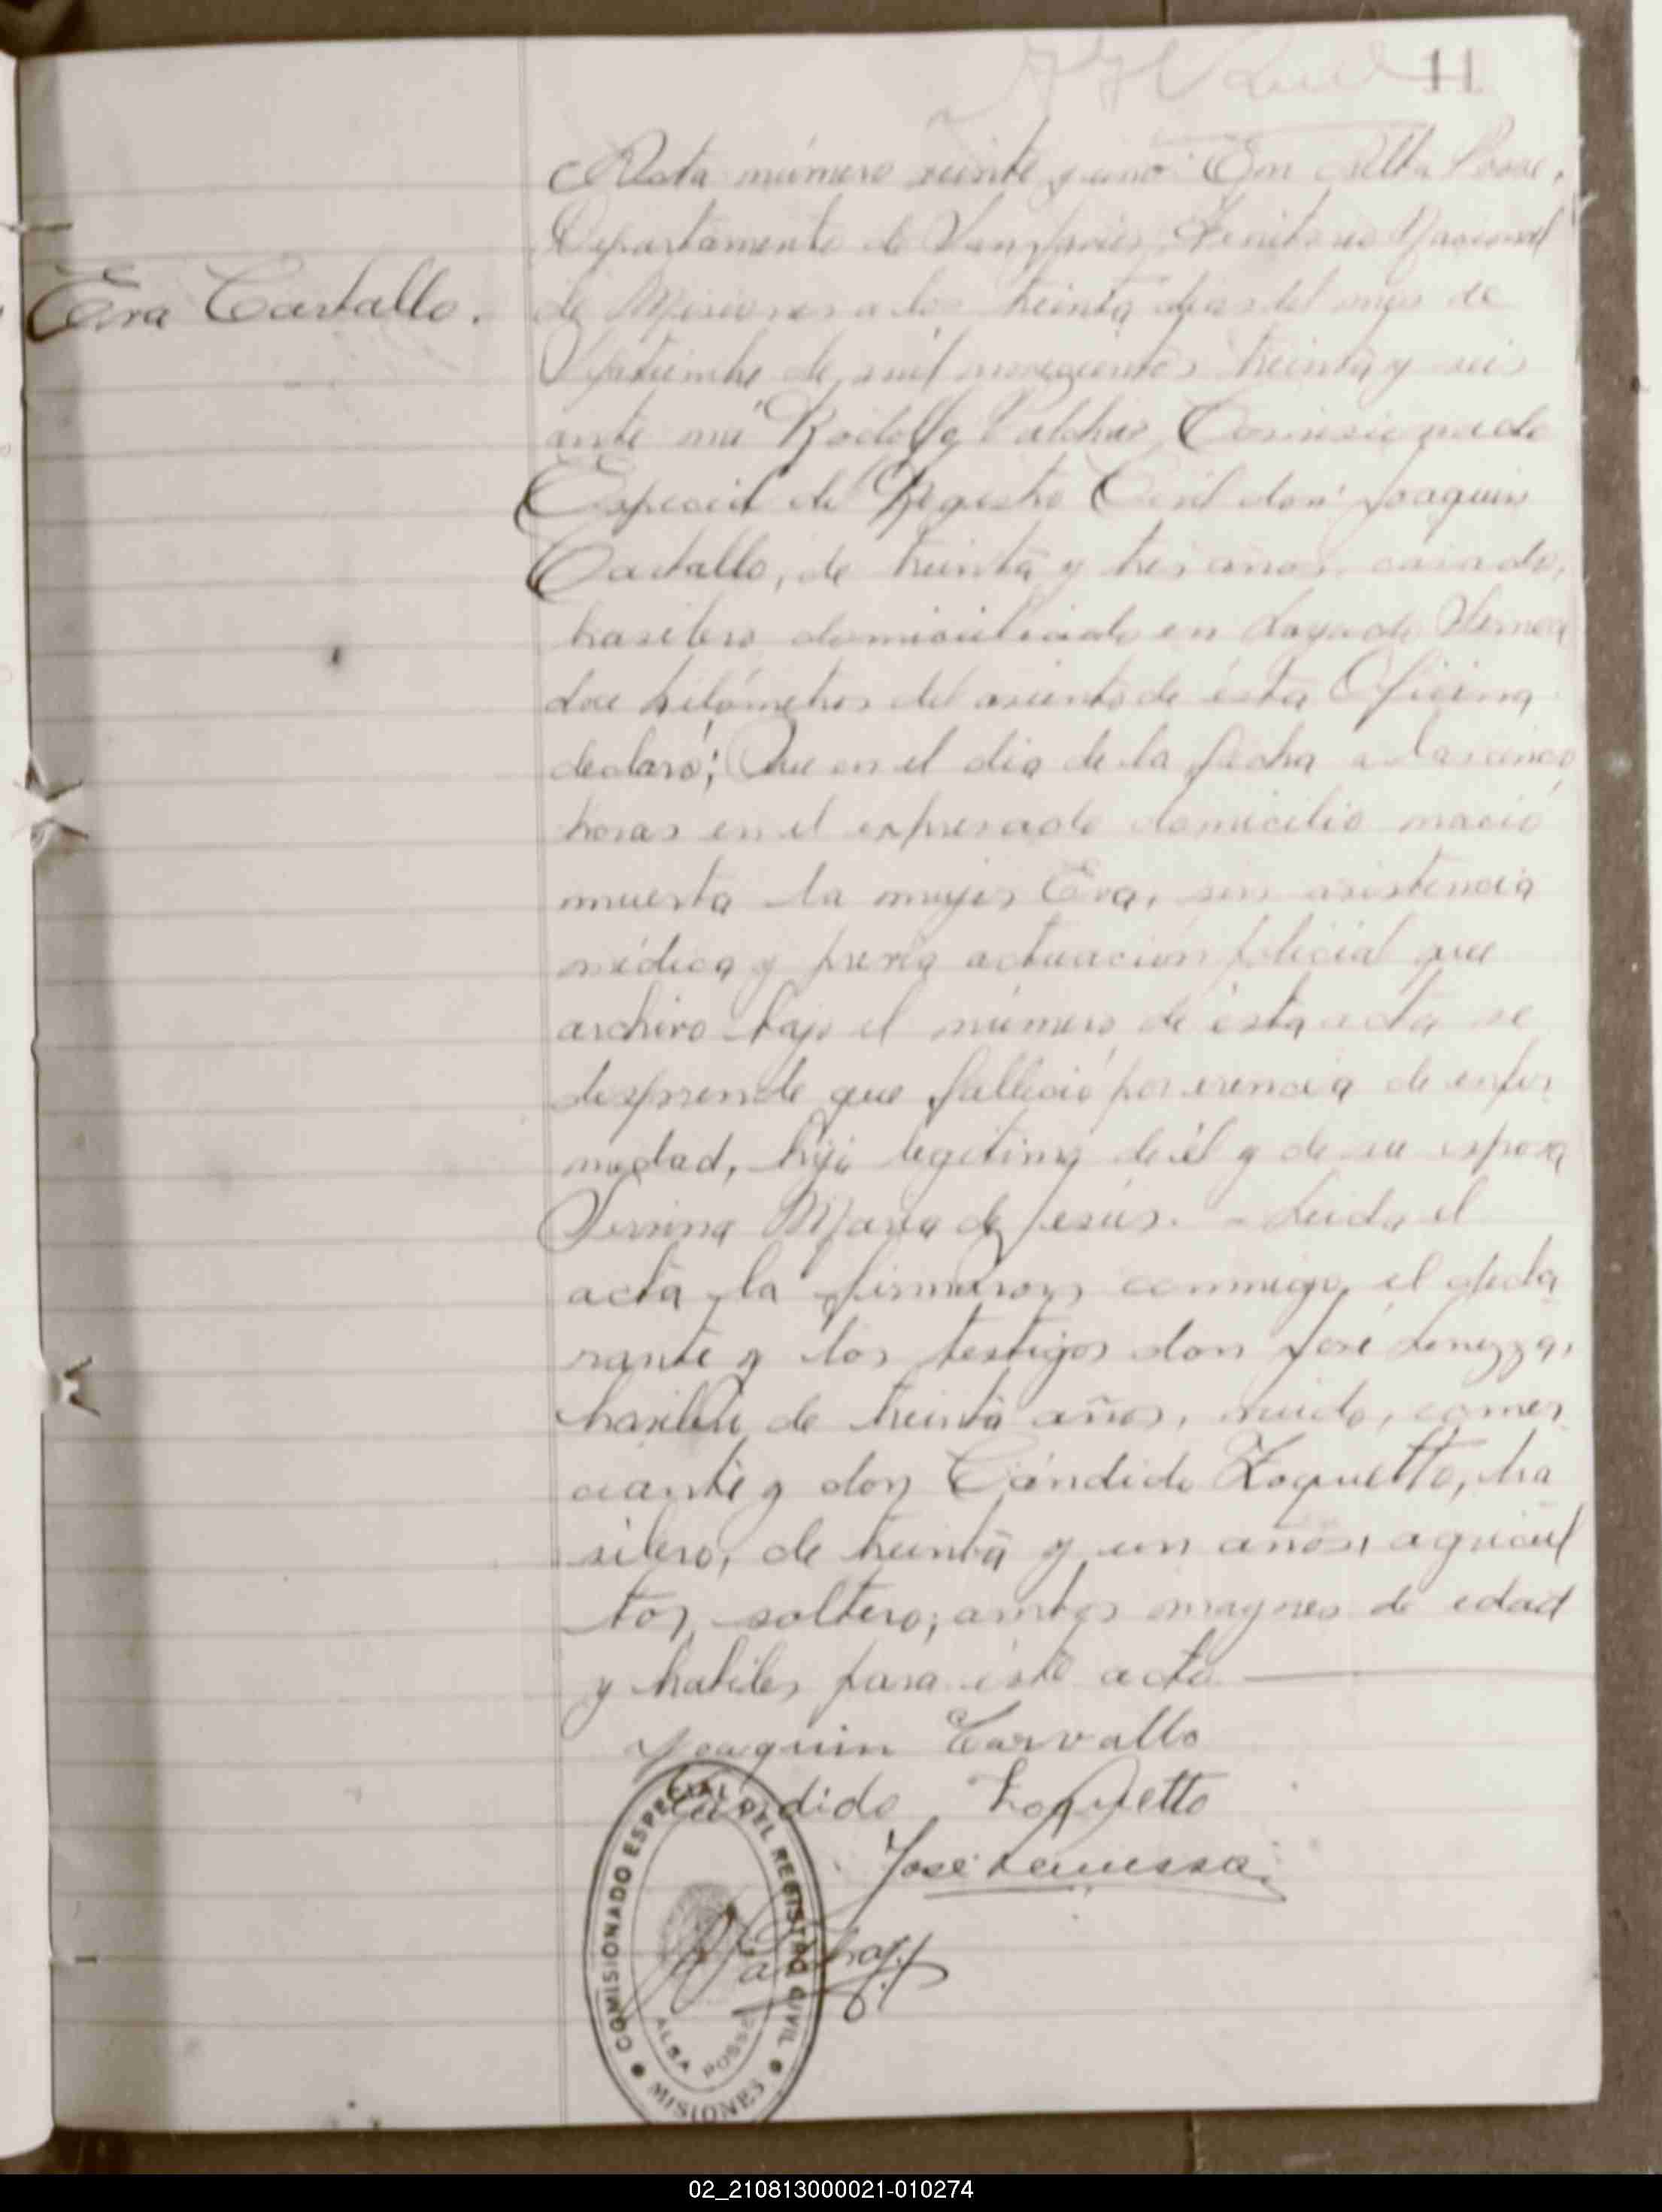 11
Acta número veinte y uno: En Alba Posse,
Departamento de San Javier, Territorio Nacional
de Misiones a los treinta dias del mes de
Eva Carballo.
Septiembre de mil novecientos treinta y seis
ante mi Rodolfo Comisionado
Especial del Registro Civil don Joaquin
Carballo, de treinta y tres años, casado,
brasilero domiciliado en
doce kilómetros del asiento de ésta Oficina
declaró; Que en el dia de la fecha a las cinco
horas en el expresado domicilio nació
muerta la mujer Eva, sin asistencia
médica y previa actuacion policial que
archivo bajo el número de ésta acta se
desprende que falleció por de enfer
medad, hija legitima de él y de su esposa
Maria de Jesús. - Leida el
acta la firmaron conmigo, el decla
rante y los testigos don José Lenezza,
brasilero de treinta años, viudo, comer
ciante y don Cándido Zoquetto, bra
silero, de treinta y un años, agricul
tor, soltero; ambos mayores de edad
y habiles para éste acto
Joaquin Carvallo
Candido Zoquetto
José
COMISIONADO ESPECIAL DEL REGISTRO CIVIL
ALBA POSSE
MISIONES
02_210813000021-010274